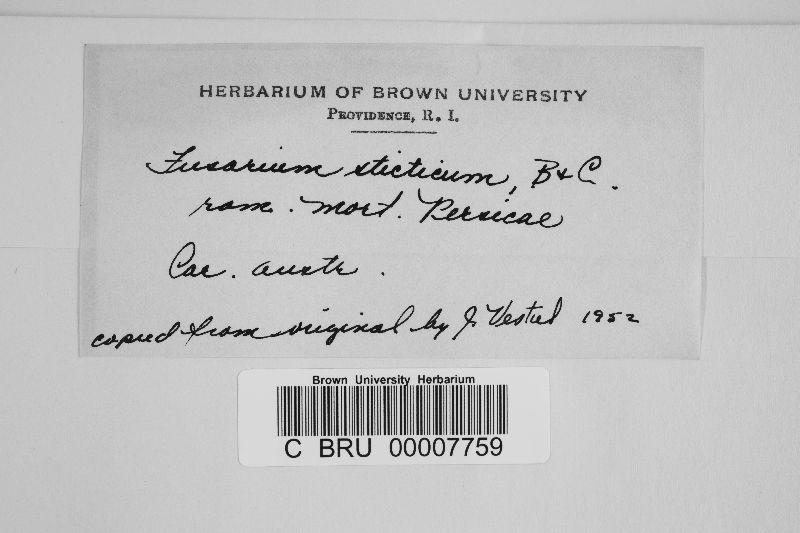 HERBARIUM OF BROWN UNIVERSITY
PROVIDENCE, R. I.
Fusarium sticticum, B & C.
ram. mort. Persicae
Car. austr.
copied from original by J. Vestal 1952
Brown University Herbarium
C BRU 00007759